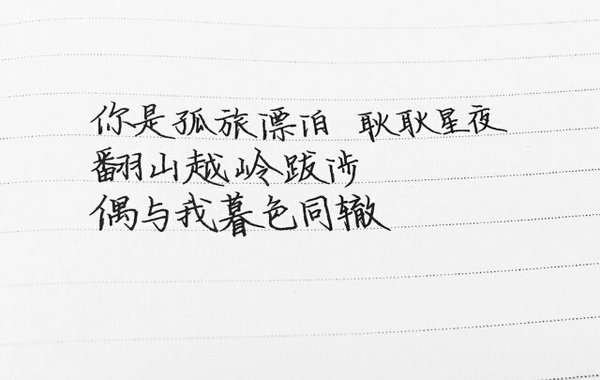 你是孤旅漂泊 耿耿星夜
翻山越岭跋涉
偶与我暮色同辙